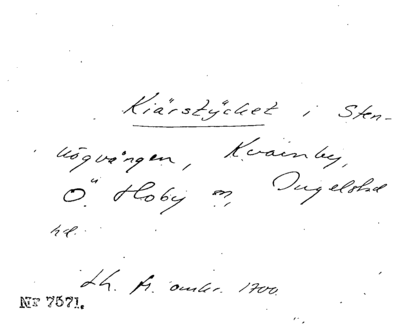 Kiärstÿcket i Sten-
högvången, Kvarnby,
Ö. Hoby sn, Ingelstad
hd.
Lh. fr. omkr. 1700.
Nr 7571.